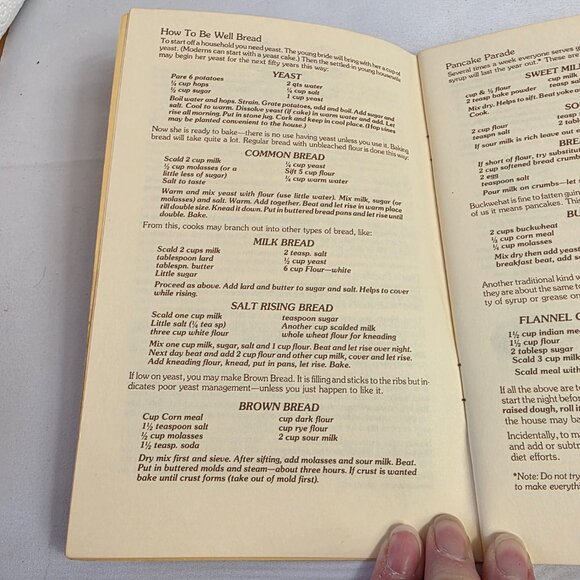 How To Be Well Bread
To start off a household you need yeast. The young bride will bring with her a cup of
yeast. (Moderns can start with a yeast cake.) Then the settled in young housewife
may begin her yeast for the next fifty years this way:
YEAST
Pare 6 potatoes
2 qts water
¼ cup hops
¼ cup salt
½ cup sugar
1 cup yeast
Boil water and hops. Strain. Grate potatoes, add and boil. Add sugar and
salt. Cool to warm. Dissolve yeast (if cake) in warm water and add. Let
rise all morning. Put in stone jug. Cork and keep in cool place. (Hop vines
may be planted convenient to the house.)
Now she is ready to bake—there is no use having yeast unless you use it. Baking
bread will take quite a lot. Regular bread with unbleached flour is done this way:
COMMON BREAD
Scald 2 cup milk
¼ cup yeast
½ cup molasses (or a
Sift 5 cup flour
little less of sugar)
¼ cup warm water
Salt to taste
Warm and mix yeast with flour (use little water). Mix milk, sugar (or
molasses) and salt. Warm. Add together. Beat and let rise in warm place
till double size. Knead it down. Put in buttered bread pans and let rise until
double. Bake.
From this, cooks may branch out into other types of bread, like:
MILK BREAD
Scald 2 cups milk
2 teasp. salt
tablespoon lard
½ cup yeast
tablespn. butter
6 cup Flour—white
Little sugar
Proceed as above. Add lard and butter to sugar and salt. Helps to cover
while rising.
SALT RISING BREAD
Scald one cup milk
teaspoon sugar
Little salt (¼ tea sp)
Another cup scalded milk
three cup white flour
whole wheat flour for kneading
Mix one cup milk, sugar, salt and 1 cup flour. Beat and let rise over night.
Next day beat and add 2 cup flour and other cup milk, cover and let rise.
Add kneading flour, knead, put in pans, let rise. Bake.
If low on yeast, you may make Brown Bread. It is filling and sticks to the ribs but in-
dicates poor yeast management—unless you just happen to like it.
BROWN BREAD
Cup Corn meal
cup dark flour
1½ teaspoon salt
cup rye flour
½ cup molasses
2 cup sour milk
1½ teasp. soda
Dry mix first and sieve. After sifting, add molasses and sour milk. Beat.
Put in buttered molds and steam—about three hours. If crust is wanted
bake until crust forms (take out of mold first).
Pancake Parade
Several times a week everyone serves
syrup will last the year out.* These are
SWEET MIL
cup & ½ flour
cup milk
2 teasp bake powder
teasp
Mix dry. Helps to sift. Beat yolks
Cook.
SO
2 cup flour
2
teaspn salt
If sour milk is rich leave out
BRE
If short of flour, try substitut
2 cup softened bread crumb
2 egg
teaspoon salt
Pour milk on crumbs—let
Buckwheat is fine to fatten
of us it means pancakes. This
BU
2 cups buckwheat
½ cup corn meal
¼ cup molasses
Mix dry then add yeast
breakfast beat, add s
Another traditional kind
they are about the same to
ty of syrup or grease on
FLANNEL C
1½ cup indian meal
1½ cup flour
2 tablesp sugar
Scald 3 cup milk
Scald meal with
If all the above are to
start the night before
raised dough, roll
the house may
Incidentally, to m
and add or subtr
diet efforts.
*Note: Do not try
to make everythin